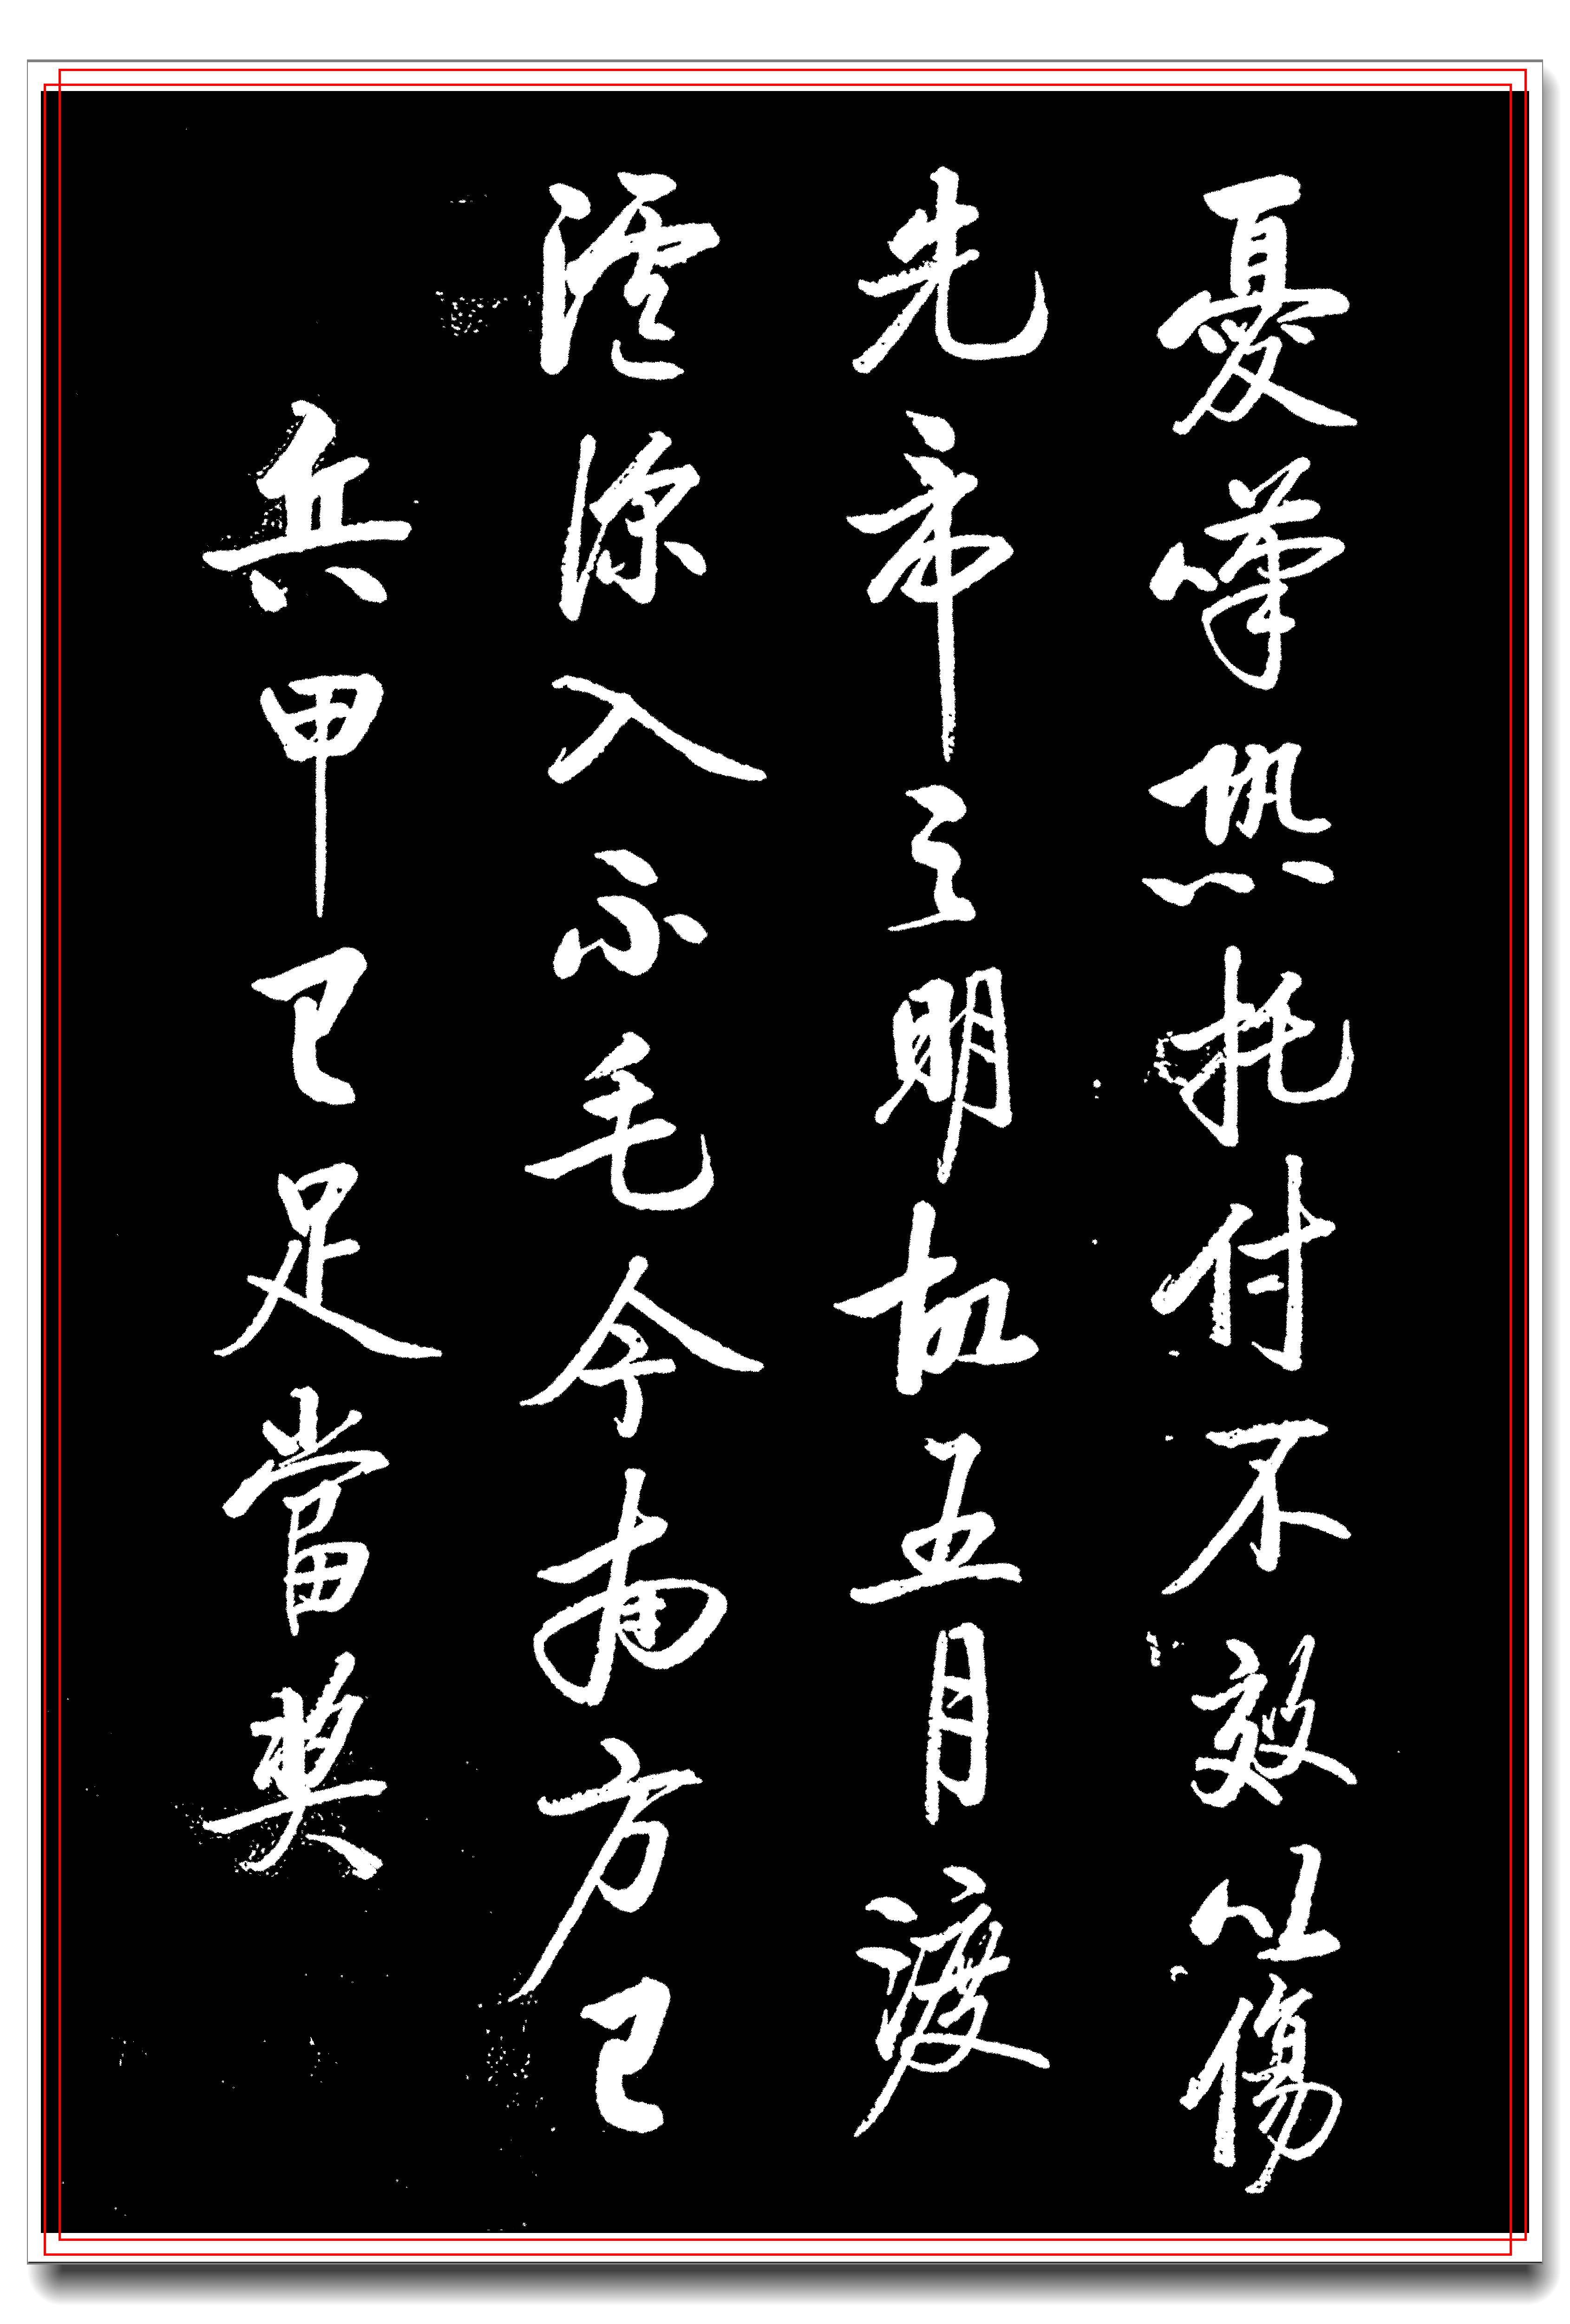 憂嘆恐托付不效以傷
先帝之明故五月渡
瀘深入不毛今南方已
兵甲已足當奬